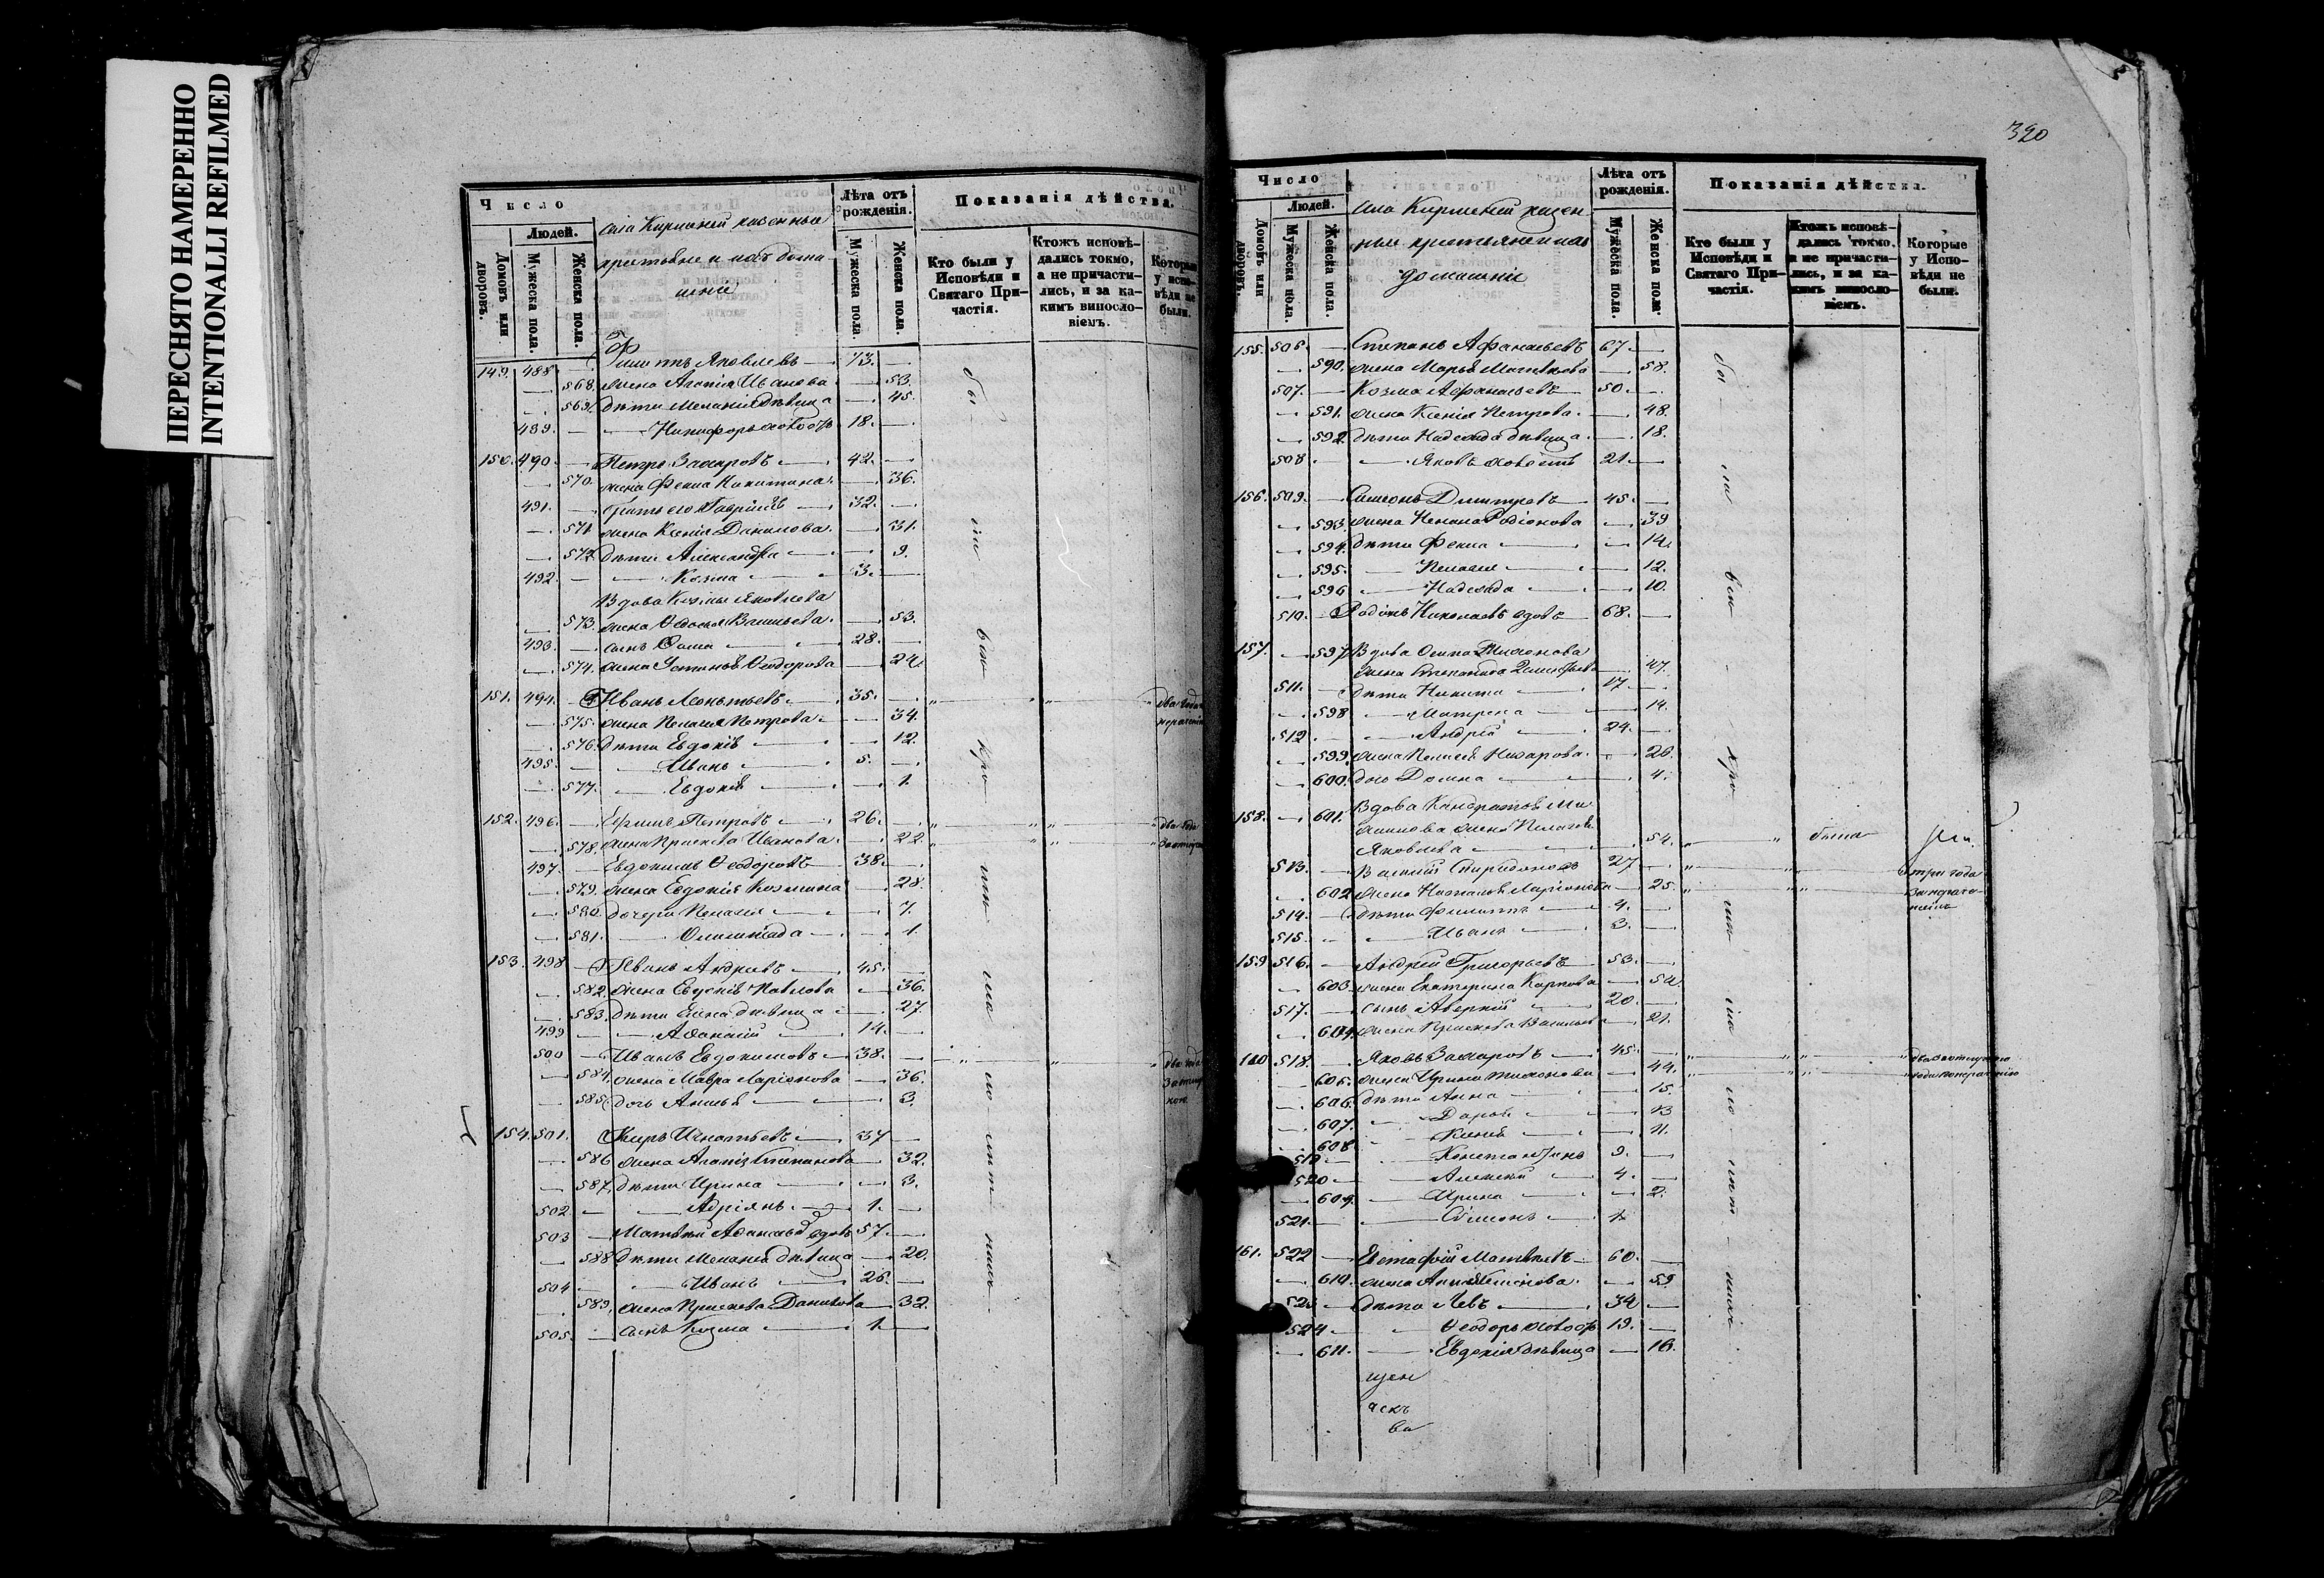 ПЕРЕСНЯТО НАМЕРЕННО
INTENTIONALLI REFILMED
Число
Людей.
Домовъ или дворовъ.
Мужеска пола.
Женска пола.
села Кирилней казенные
крестьяне и ихъ дома-
шніе
Лѣта отъ рожденія.
Мужеска пола
Женска пола.
Показанія дѣйства.
Кто были у Исповѣди и Святаго При-частія.
Ктожъ исповѣ-дались токмо, а не причасти-лись, и за ка-кимъ виносло-віемъ.
Которые у испо-вѣди не были.
149. 488 — Филиппъ Яковлевъ 73.
568. жена Агапія Иванова 53.
569. дѣти Меланія дѣвица 45.
489. — Никифоръ холостъ 18.
150. 490. — Петръ Захаровъ 42.
570. жена Фекла Никитина 36.
491. — братъ его Гавріилъ 32.
571 жена Ксенія Данилова 31.
572. дѣти Александра 9.
492. — Козма 3.
Вдова Козмы Яковлева
573. жена Ѳедосья Васильева 53.
493. — сынъ Ѳома 28.
574. жена Устинья Ѳеодорова 24.
151. 494. — Иванъ Леонтьевъ 35.
575. жена Пелагея Петрова 34.
576. дѣти Евдокія 12.
495. — Иванъ 5.
577. — Евдокія 1.
152. 496. — Ефимъ Петровъ 26.
578. жена Прасковья Иванова 22.
497. — Евдокимъ Ѳеодоровъ 38.
579. жена Евдокія Козмина 28.
580. дочери Пелагея 7.
581. — Олимпіада 1.
153. 498 — Иванъ Андреевъ 45.
582. жена Евгенія Павлова 36.
583. дѣти Елена дѣвица 27.
499 — Аѳанасій 14.
500 — Иванъ Евдокимовъ 38.
584. жена Мавра Ларіонова 36.
585. дочь Анисья 3.
154. 501. Киръ Игнатьевъ 37
586 жена Агапія Степанова 32.
587. дѣти Ирина 3.
502 — Адріянъ 1.
503 — Матвей Аѳанасьевъ вдовъ 57.
588 дѣти Меланія дѣвица 20.
504 — Иванъ 26.
589. жена Прасковья Данилова 32.
505. — сынъ Козма 1.
320
Число
Людей.
Домовъ или дворовъ.
Мужеска пола.
Женска пола.
села Кирилней казен-
ные крестьяне и ихъ
домашніе
Лѣта отъ рожденія.
Мужеска пола.
Женска пола
Показанія дѣйства.
Кто были у Исповѣди и Святаго При-частія.
Ктожъ исповѣ-дались токмо, а не причасти-лись, и за ка-кимъ виносло-віемъ.
Которые у Испо-вѣди не были.
155. 506. — Степанъ Афанасьевъ 67.
590. жена Марья Матвѣева 58.
507. — Козма Афанасьевъ 50.
591. жена Ксенія Петрова 48.
592. дѣти Надежда дѣвица 18.
508 — Яковъ холостъ 21.
156. 509. — Симеонъ Дмитревъ 45.
593. жена Ненила Родіонова 39
594. дѣти Фекла 14.
595. — Пелагея 12.
596 — Надежда 10.
510. — Родіонъ Николаевъ вдовъ 68.
157. — 597. Вдова Осипа Тихонова
жена Степанида 47.
511. — дѣти Никита 17
598 — Матрена 14.
512 — Андрей 24.
599. жена Пелагея Назарова 20.
600. дочь Домна 4.
158. 601. Вдова Кондратья Ми
хайлова жена Пелагея
Яковлева 54. была
513. — Василій Спиридоновъ 27 три года
602 жена Наталья Ларіонова 25.
514. — дѣти Филиппъ 4.
515. — Иванъ 3.
159 516. — Андрей Григорьевъ 53.
603. жена Екатерина Карпова 52
517. — сынъ Аверкій 20.
604. жена Прасковья Васильева 21.
160 518. — Яковъ Захаровъ 45.
605. жена Ирина Тихонова 44.
606. дѣти Анна 15.
607. — Дарья 13
608 — Ксенія 11.
519 — Константинъ 9.
520 — Алексей 4.
609. — Ирина 2.
521. — Симеонъ 1
161. 522 — Евстафій Матвѣевъ 60.
610. жена Анна 59
523 — дѣти Левъ 34
524 — Ѳеодоръ холостъ 19.
611. — Евдокія дѣвица 16.
щен
аскъ
ва